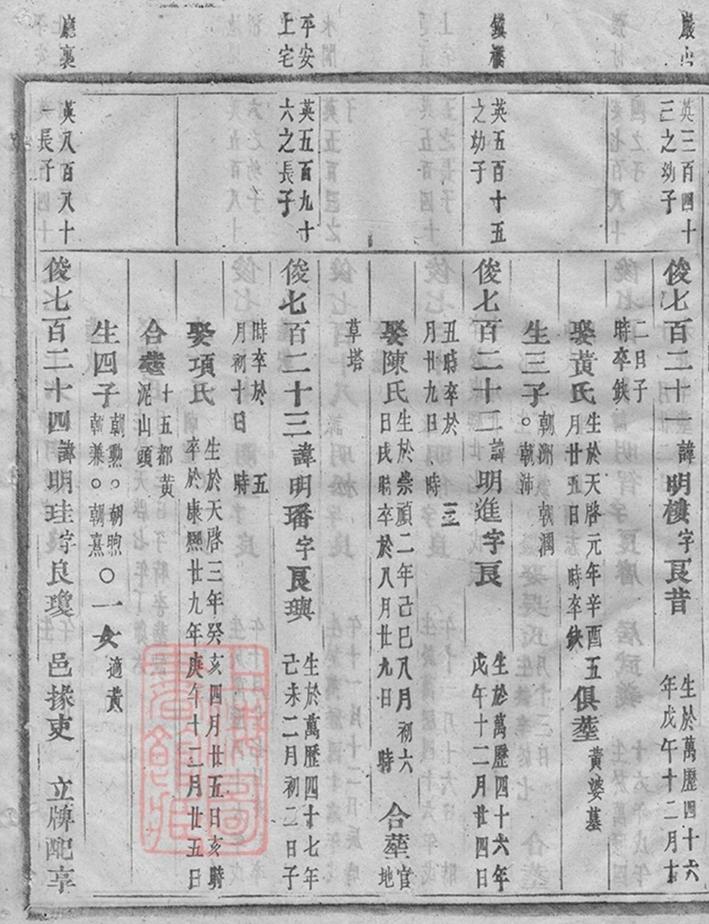 巖山
英三百四十三之幼子
俊七百二十一諱明樓字良昔
生於萬歷四十六年戊午十二月十二日子時卒缺
娶黃氏生於天啓元年辛酉五月廿五日時卒缺
俱塟黃婆墓
生三子朝淵 朝潤○朝沛
鎮橋
英五百十五之幼子
俊七百二十二諱明進字良
生於萬歷四十六年戊午十二月廿四日丑時卒於
月廿九日 時
娶陳氏生於崇禎二年己巳八月初六日戌時卒於八月廿九日 時
合塟官地草塔
平安上宅
英五百九十六之長子
俊七百二十三諱明璠字良璵
生於萬歷四十七年己未二月初二日子時卒於 五月初十日 時
娶項氏生於天啓三年癸亥四月廿五日亥時卒於康熙廿九年庚午十二月廿五日
合塟十五都黃泥山頭
生四子朝勲○朝煦○朝兼○朝熹○一女適黃
廳裏
英八百八十長子
俊七百二十四諱明珪字良瓊 邑掾吏 立牌配享